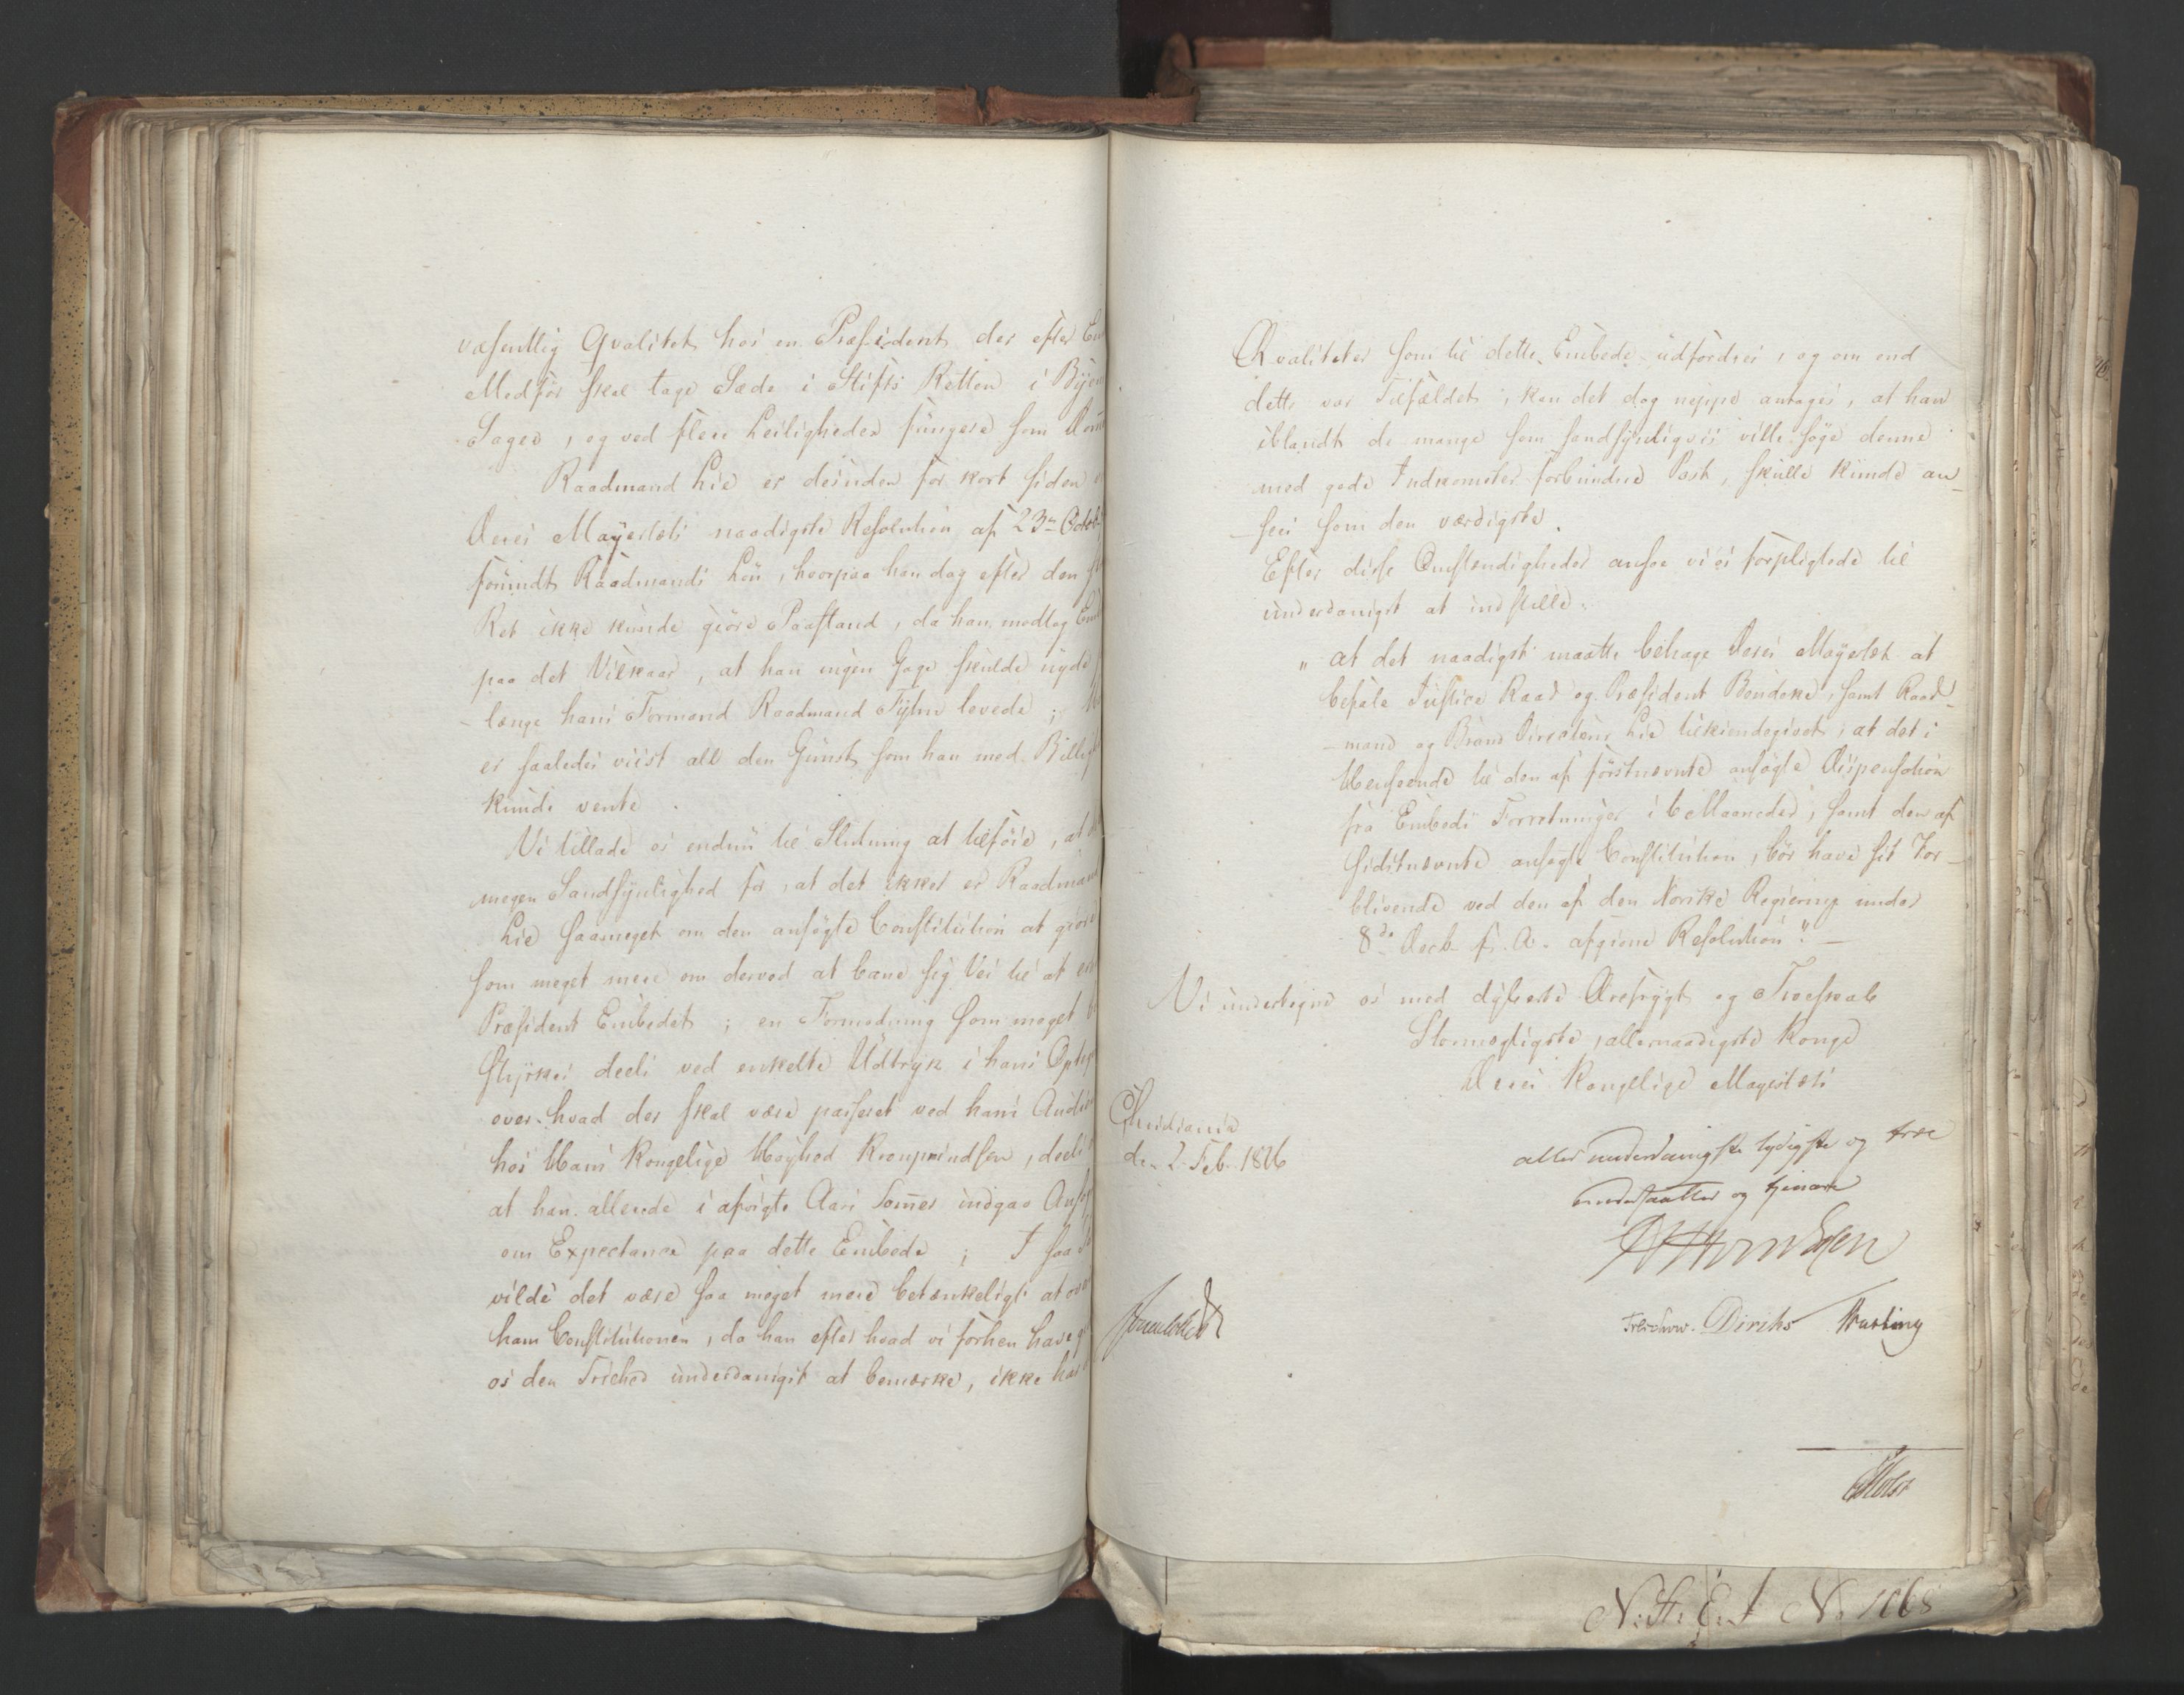 væsentlig Qvalitet hos en Præsident der efter
Medför skal tage Sæde i Stifts Retten i
Sager, og ved flere Leiligheder fungere som
Raadmand Lie er desuden for kort siden
Deres Mayestæts naadigste Resolution af 23de
forundt Raadmands Lön, hvorpaa han dog efter den
Ret ikke kunde giöre Paastand, da han modtog
paa det Vilkaar, at han ingen Gage skulde nyde
længe hans Formand Raadmand levede;
er saaledes viist all den Gunst som han med
kunde vente.
Vi tillade os endnu til Slutning at tilföie, at
megen Sandsynlighed for, at det ikke er Raadmand
Lie saameget om den ansögte Constitution at giöre
som meget mere om derved at bane sig Vei til at
Præsident Embedet; en Formodning som meget
styrkes deels ved enkelte Udtryk i hans
over hvad der skal være passeret ved hans
hos Hans Kongelige Höyhed Kronprindsen, deels
at han allerede i afvigte Aars Som̃er indgav
om Expectance paa dette Embede; I saa
vilde det være saa meget mere betænkeligt at
ham Constitutionen, da han efter hvad vi forhen have
os den Friehed underdanigst at bemærke, ikke har
Qvaliteter som til dette Embede udfordres, og om end
dette var Tilfældet, kan det dog neppe antages, at han
iblandt de mange som sandsynligviis ville söge denne
med gode Indkomster forbundne Post, skulle kunde an-
sees som den værdigste.
Efter disse Omstændigheder ansee vi os forpligtede til
underdanigst at indstille:
„at det naadigst maatte behage Deres Mayestæt at
befale Justice Raad og Præsident Bendeke, samt Raad-
mand og Brand Directeur Lie tilkiendegivet, at det i
Henseende til den af förstnævnte ansögte Dispensation
fra Embeds Forretninger i 6 Maaneder, samt den af
sidstnævnte ansögte Constitution, bör have sit For-
blivende ved den af den Norske Regiering under
8de Decb. f. A. afgivne Resolution". —
Vi undertegne os med dybeste Ærefrygt og Troeskab
Stormægtigste, allernaadigste Konge
Deres Kongelige Mayestæts
Christiania
den 2 Feb. 1816
aller underdanigste lydigste og troe
undersaatter og tjenere
Diriks
Holst
N: St: E: J No 1068